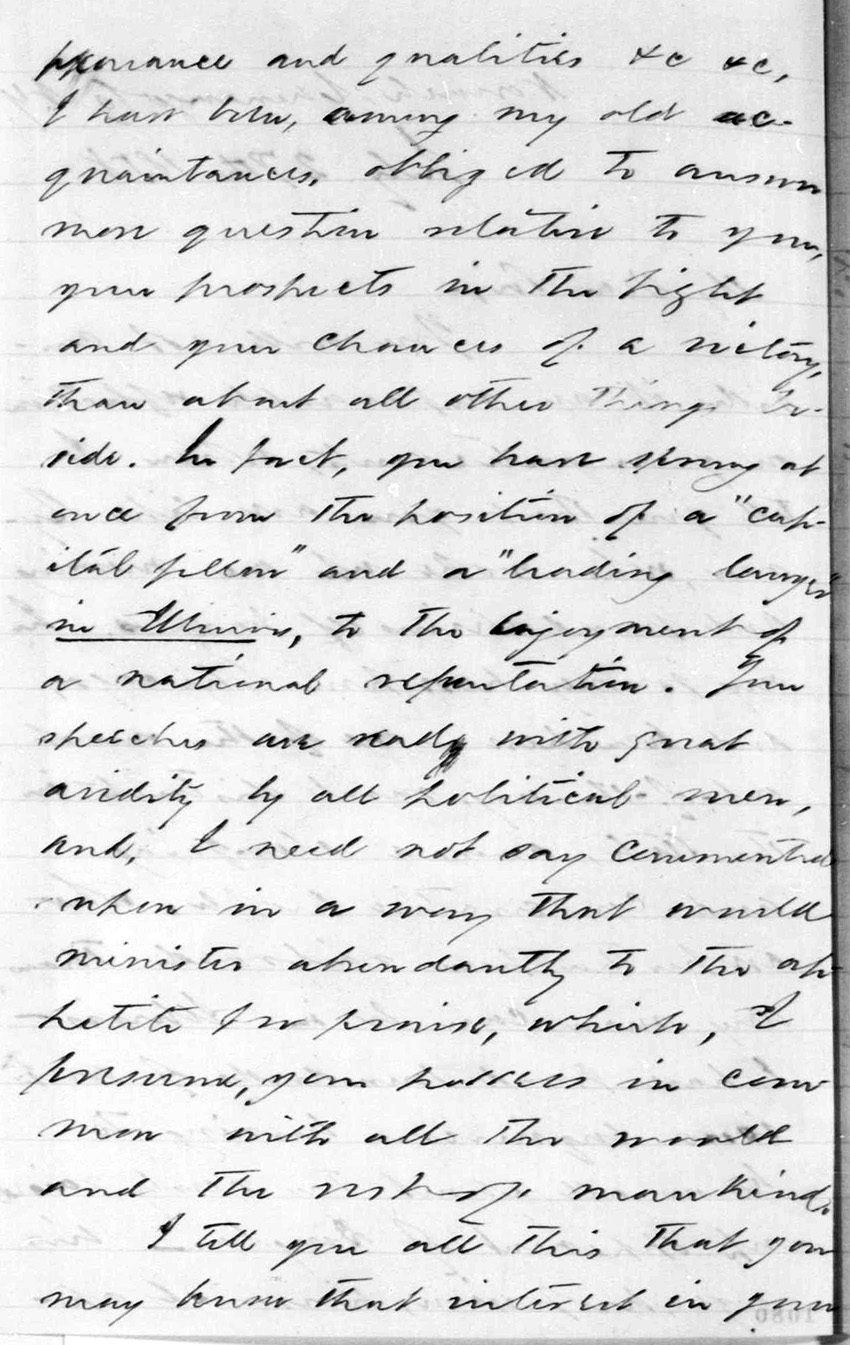 pearance and qualities &c &c,
I have been, among my old ac-
quaintances, obliged to answer
more question relative to you,
your prospects in the fight
and your chances of a victory,
than about all other things be-
side. In fact, you have sprung at
once from the position of a "cap-
ital fellow" and a "leading lawyer"
in Illinois, to the enjoyment of
a national reputation. Your
speeches are read with great
avidity by all political men,
and, I need not say commented
upon in a way that would
minister abundantly to the ap-
petite for praise, which, I
presume, you possess in com
mon with all the world
and the rest of mankind.
I tell you all this that you
may know that interest in your
1080